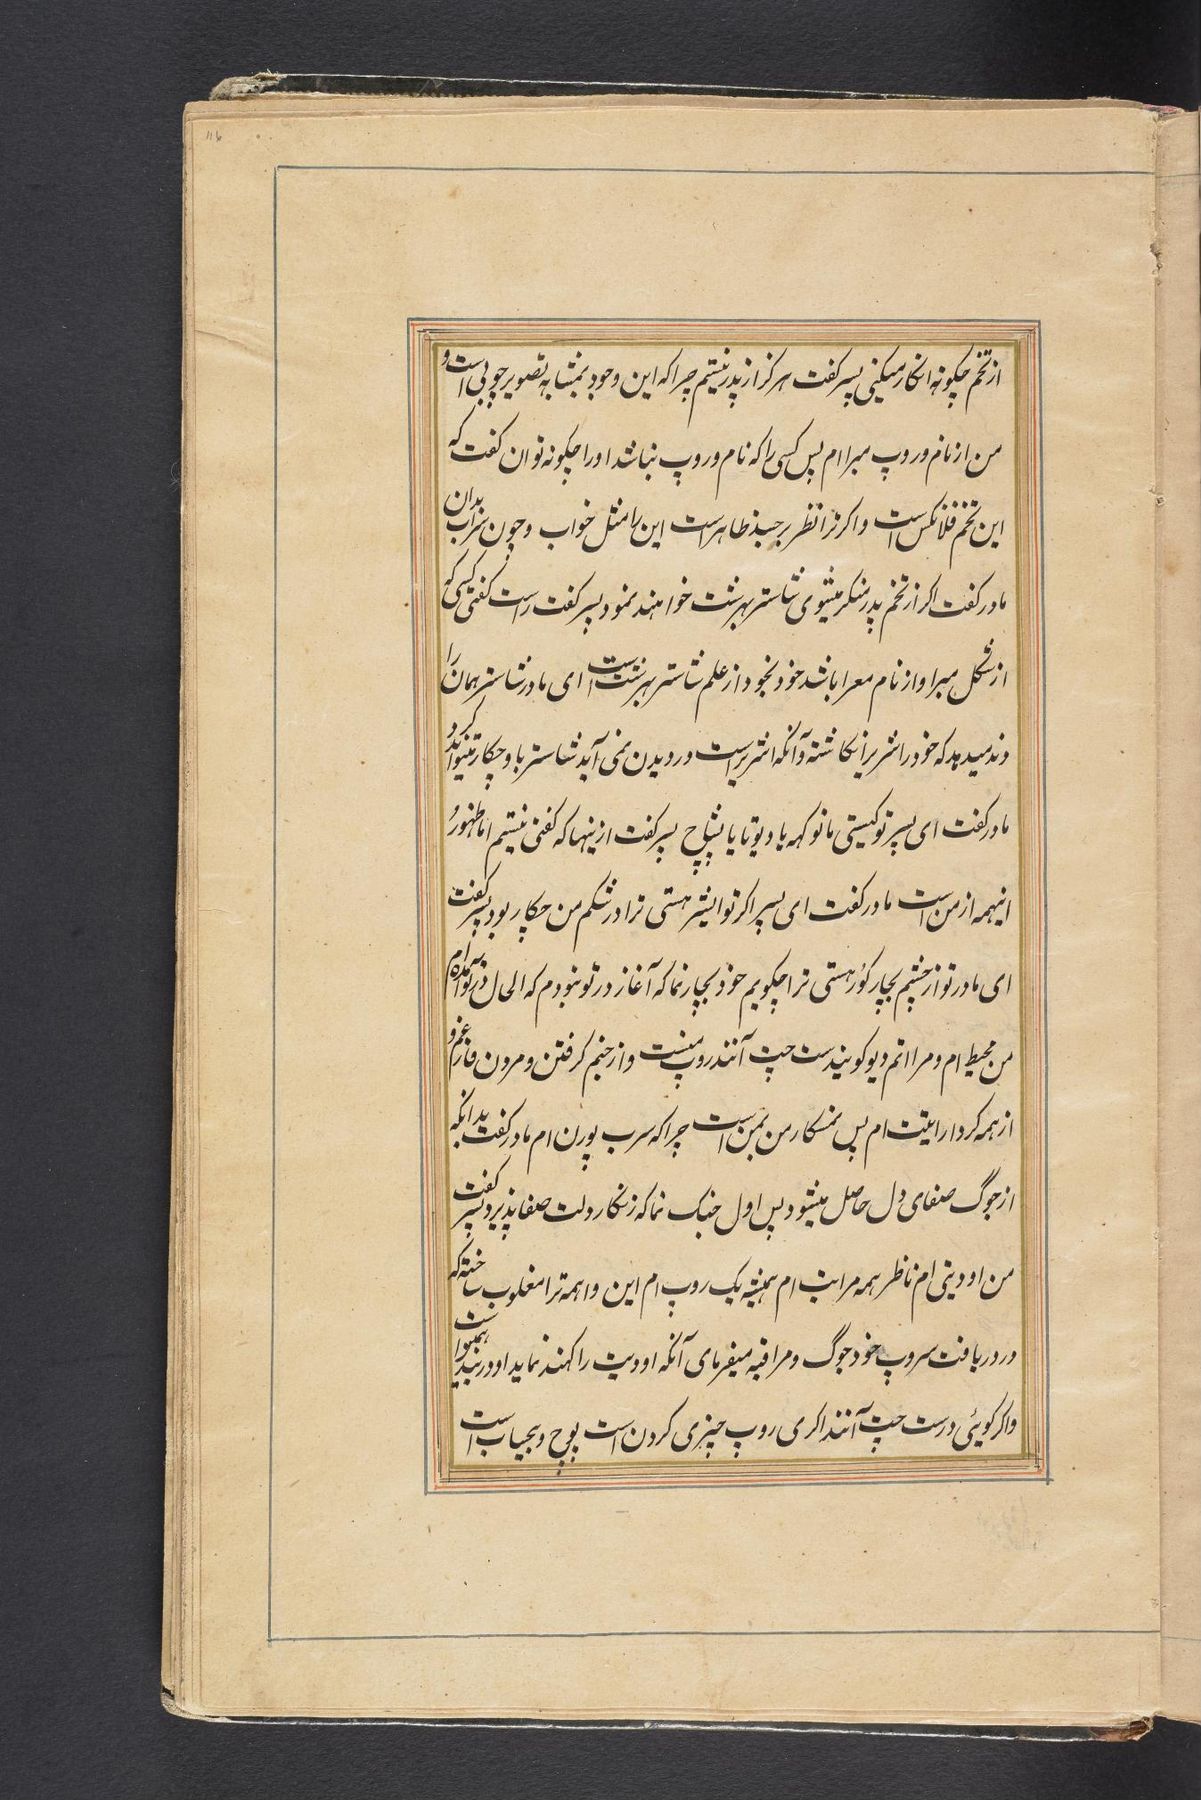 ۱۱۶
از تخم چکونه انکار میکنی پسر کفت هرکز از پدر نیستم چرا که این وجود بمشابه تصویر چوبی است و
من از نام و روپ مبرا ام پس کسی را که نام و روپ نباشد او را چکونه توان کفت که
این تخم فلانکس است و اکر ترا نظر بر جسد ظاهر است این را مثل خواب و چون سراب بدان
مادر کفت اکر از تخم پدر منکر میشوی شاستر بهرشت خواهند نمود پسر کفت راست کفتی کسی که
از شکل مبرا و از نام معرا باشد خود بخود از علم شاستر بهرشت است ای مادر شاستر همان را
دند میدهد که خود را شریر انکاشته و آنکه اشریر است در دیدن نمی آید شاستر با و چکار میتواند کرد
مادر کفت ای پسر تو کیستی مانوکهه یا دیوتا یا پشاچ پسر کفت ازینها که کفتی نیستم اما ظهور
اینهمه از من است مادر کفت ای پسر اکر تو ایشر هستی ترا در شکم من چکار بود پسر کفت
ای مادر تو از چشم بچار کور هستی ترا چکویم خود بچار نما که آغاز در تو نبودم که الحال در تو آمده ام
من محیط ام و مرا اتم دیو کویند ست چت آنند روپ منست و از جنم کرفتن و مردن فارغم و
از همه کردار اتیت ام پس نمسکار من بمن است چرا که سرب پورن ام مادر کفت بدانکه
از جوک صفای دل حاصل میشود پس اول جنک نما که زنکار دلت صفا پذیرد پسر کفت
من اودیتی ام ناظر همه مراتب ام همیشه یک روپ ام این واهمه ترا مغلوب ساخته که
در دریافت سروپ خود جوک و مراقبه میفرمای آنکه اودیت را کهند نماید او در بند همیوا ست
و اکر کویئی درست چت آنند اکری روپ چیزی کردن است پوچ و بیحساب است